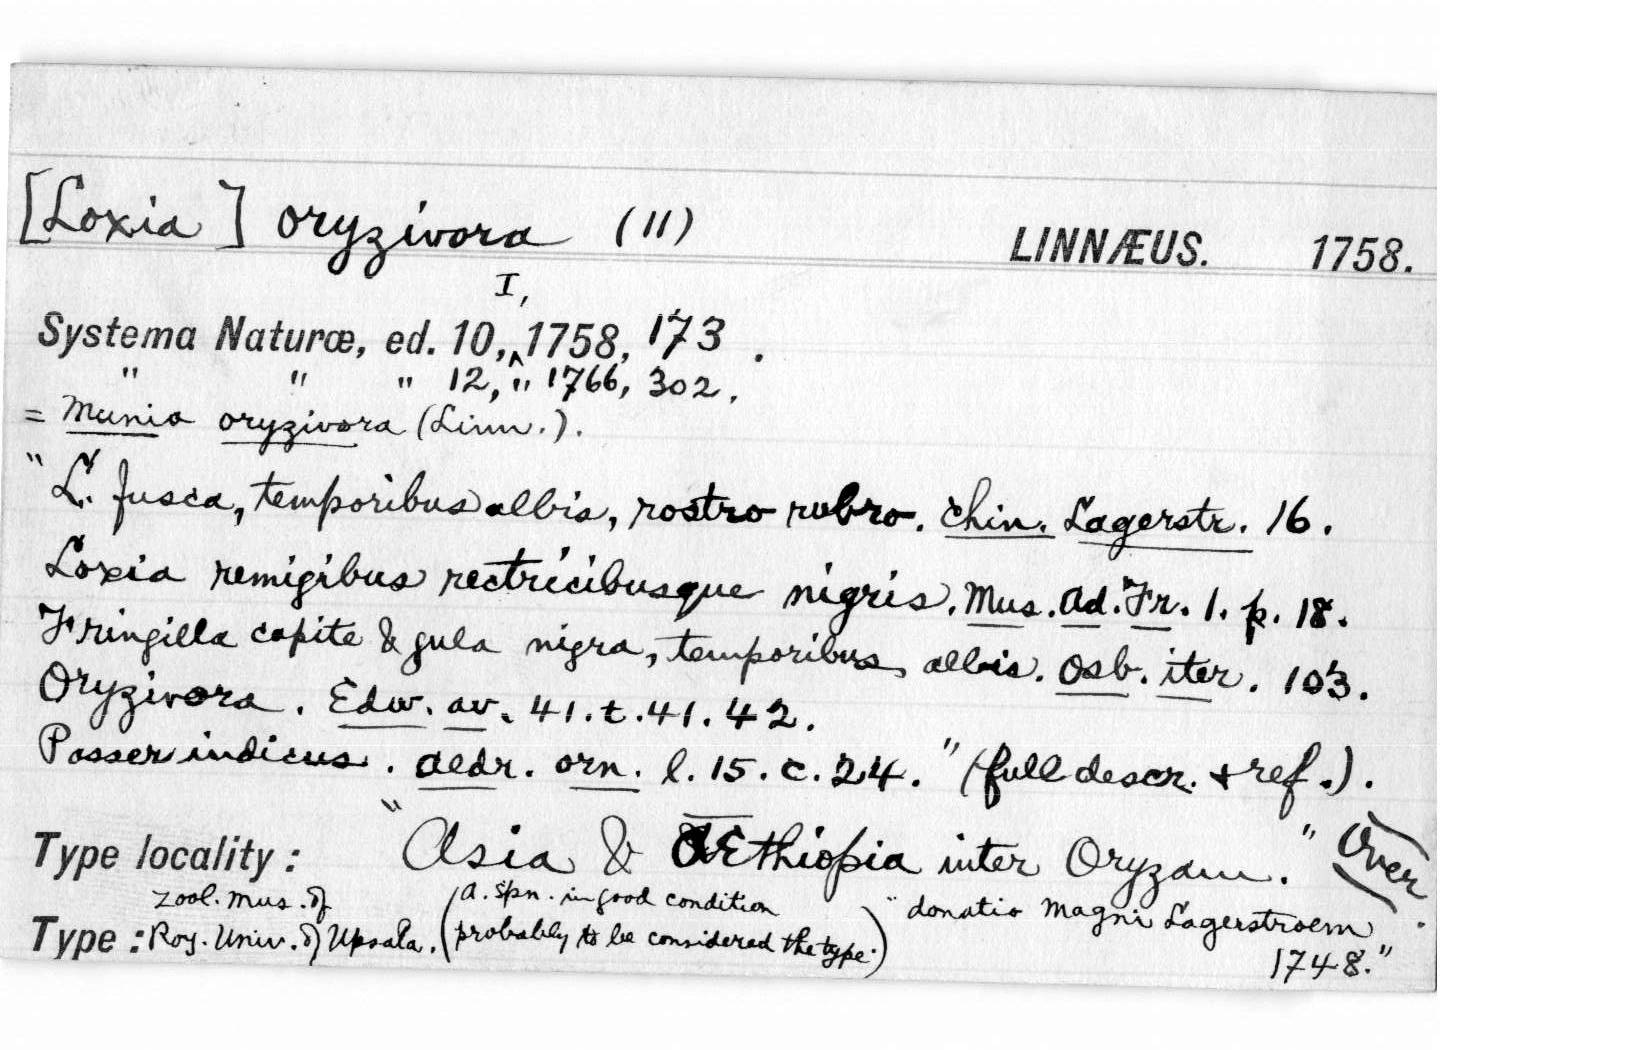 [Loxia] oryzivora (11) LINNÆUS. 1758.
I,
Systema Naturæ, ed. 10,^1758, 173.
" " " 12, " 1766, 302.
= Munia oryzivora (Linn.).
"L. fusca, temporibus albis, rostro rubro. Chin. Lagerstr. 16.
Loxia remigibus rectricibusque nigris. Mus. Ad. Fr. 1. p. 18.
Fringilla capite & gula nigra, temporibus albis. Osb. iter. 103.
Oryzivora. Edw. av. 41. t. 41. 42.
Passer indicus. Aldr. orn. l. 15. c. 24." (full descr. + ref.).
Type locality: "Asia & Æthiopia inter Oryzam." Over.
Type: Zool. Mus. of Roy. Univ. of Upsala. (A. spn. in good condition probably to be considered the type.) "donatio Magni Lagerstroem
1748."